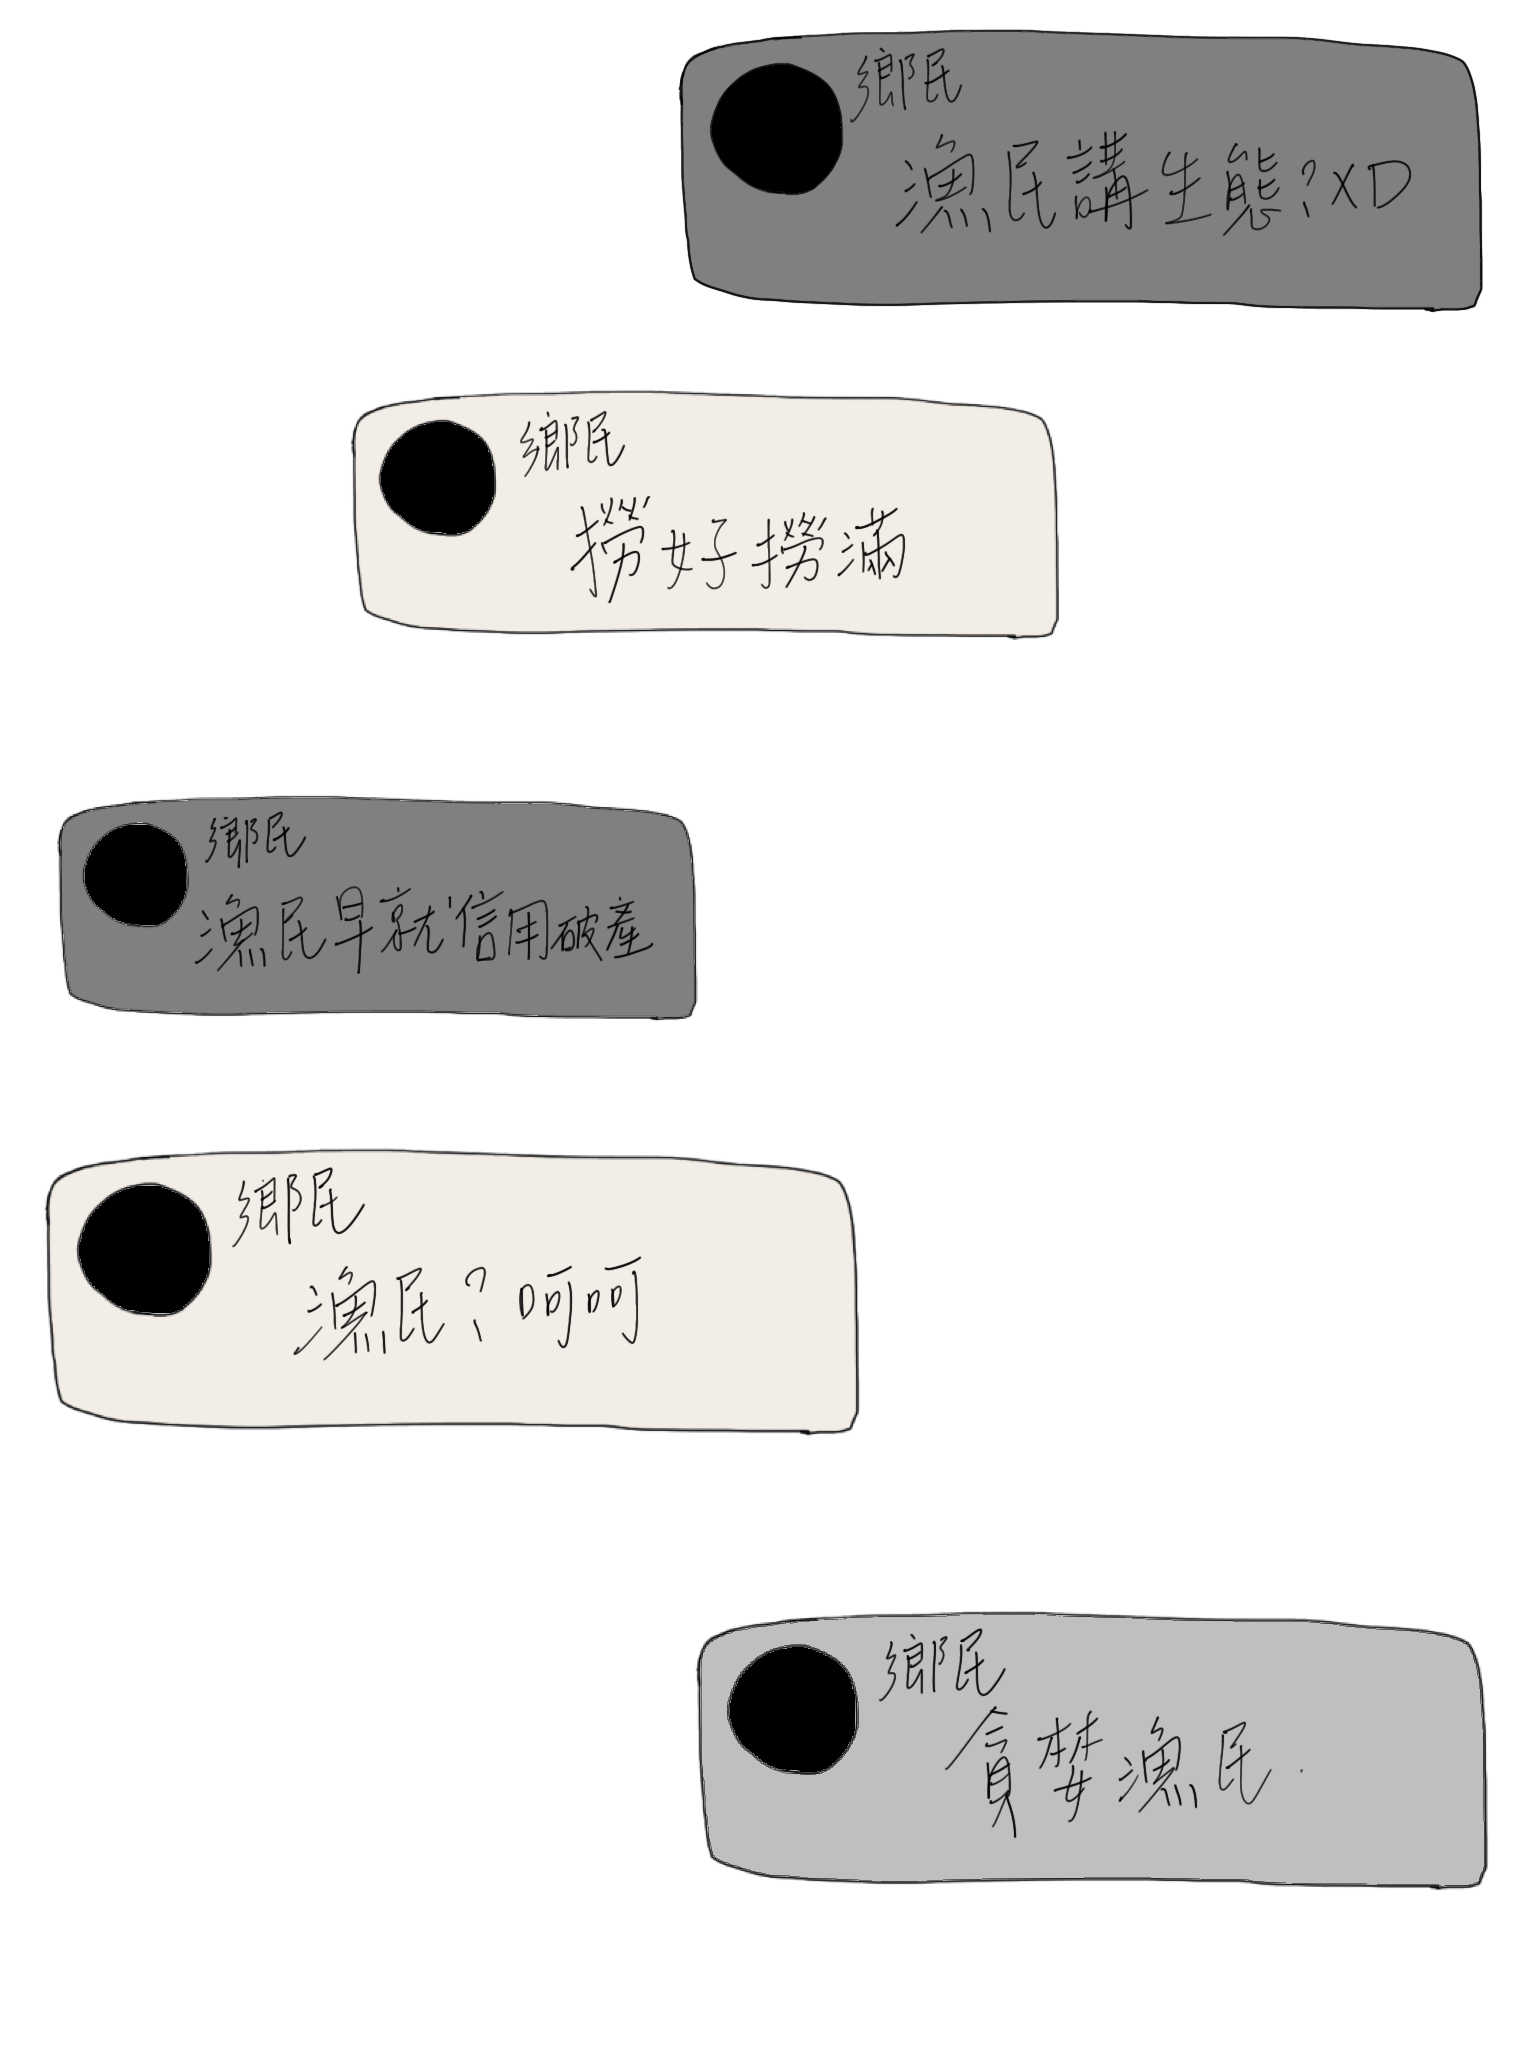 鄉民
漁民講生態?XD
鄉民
撈好撈滿
鄉民
漁民早就信用破產
鄉民
漁民?呵呵
鄉民
貪婪漁民.